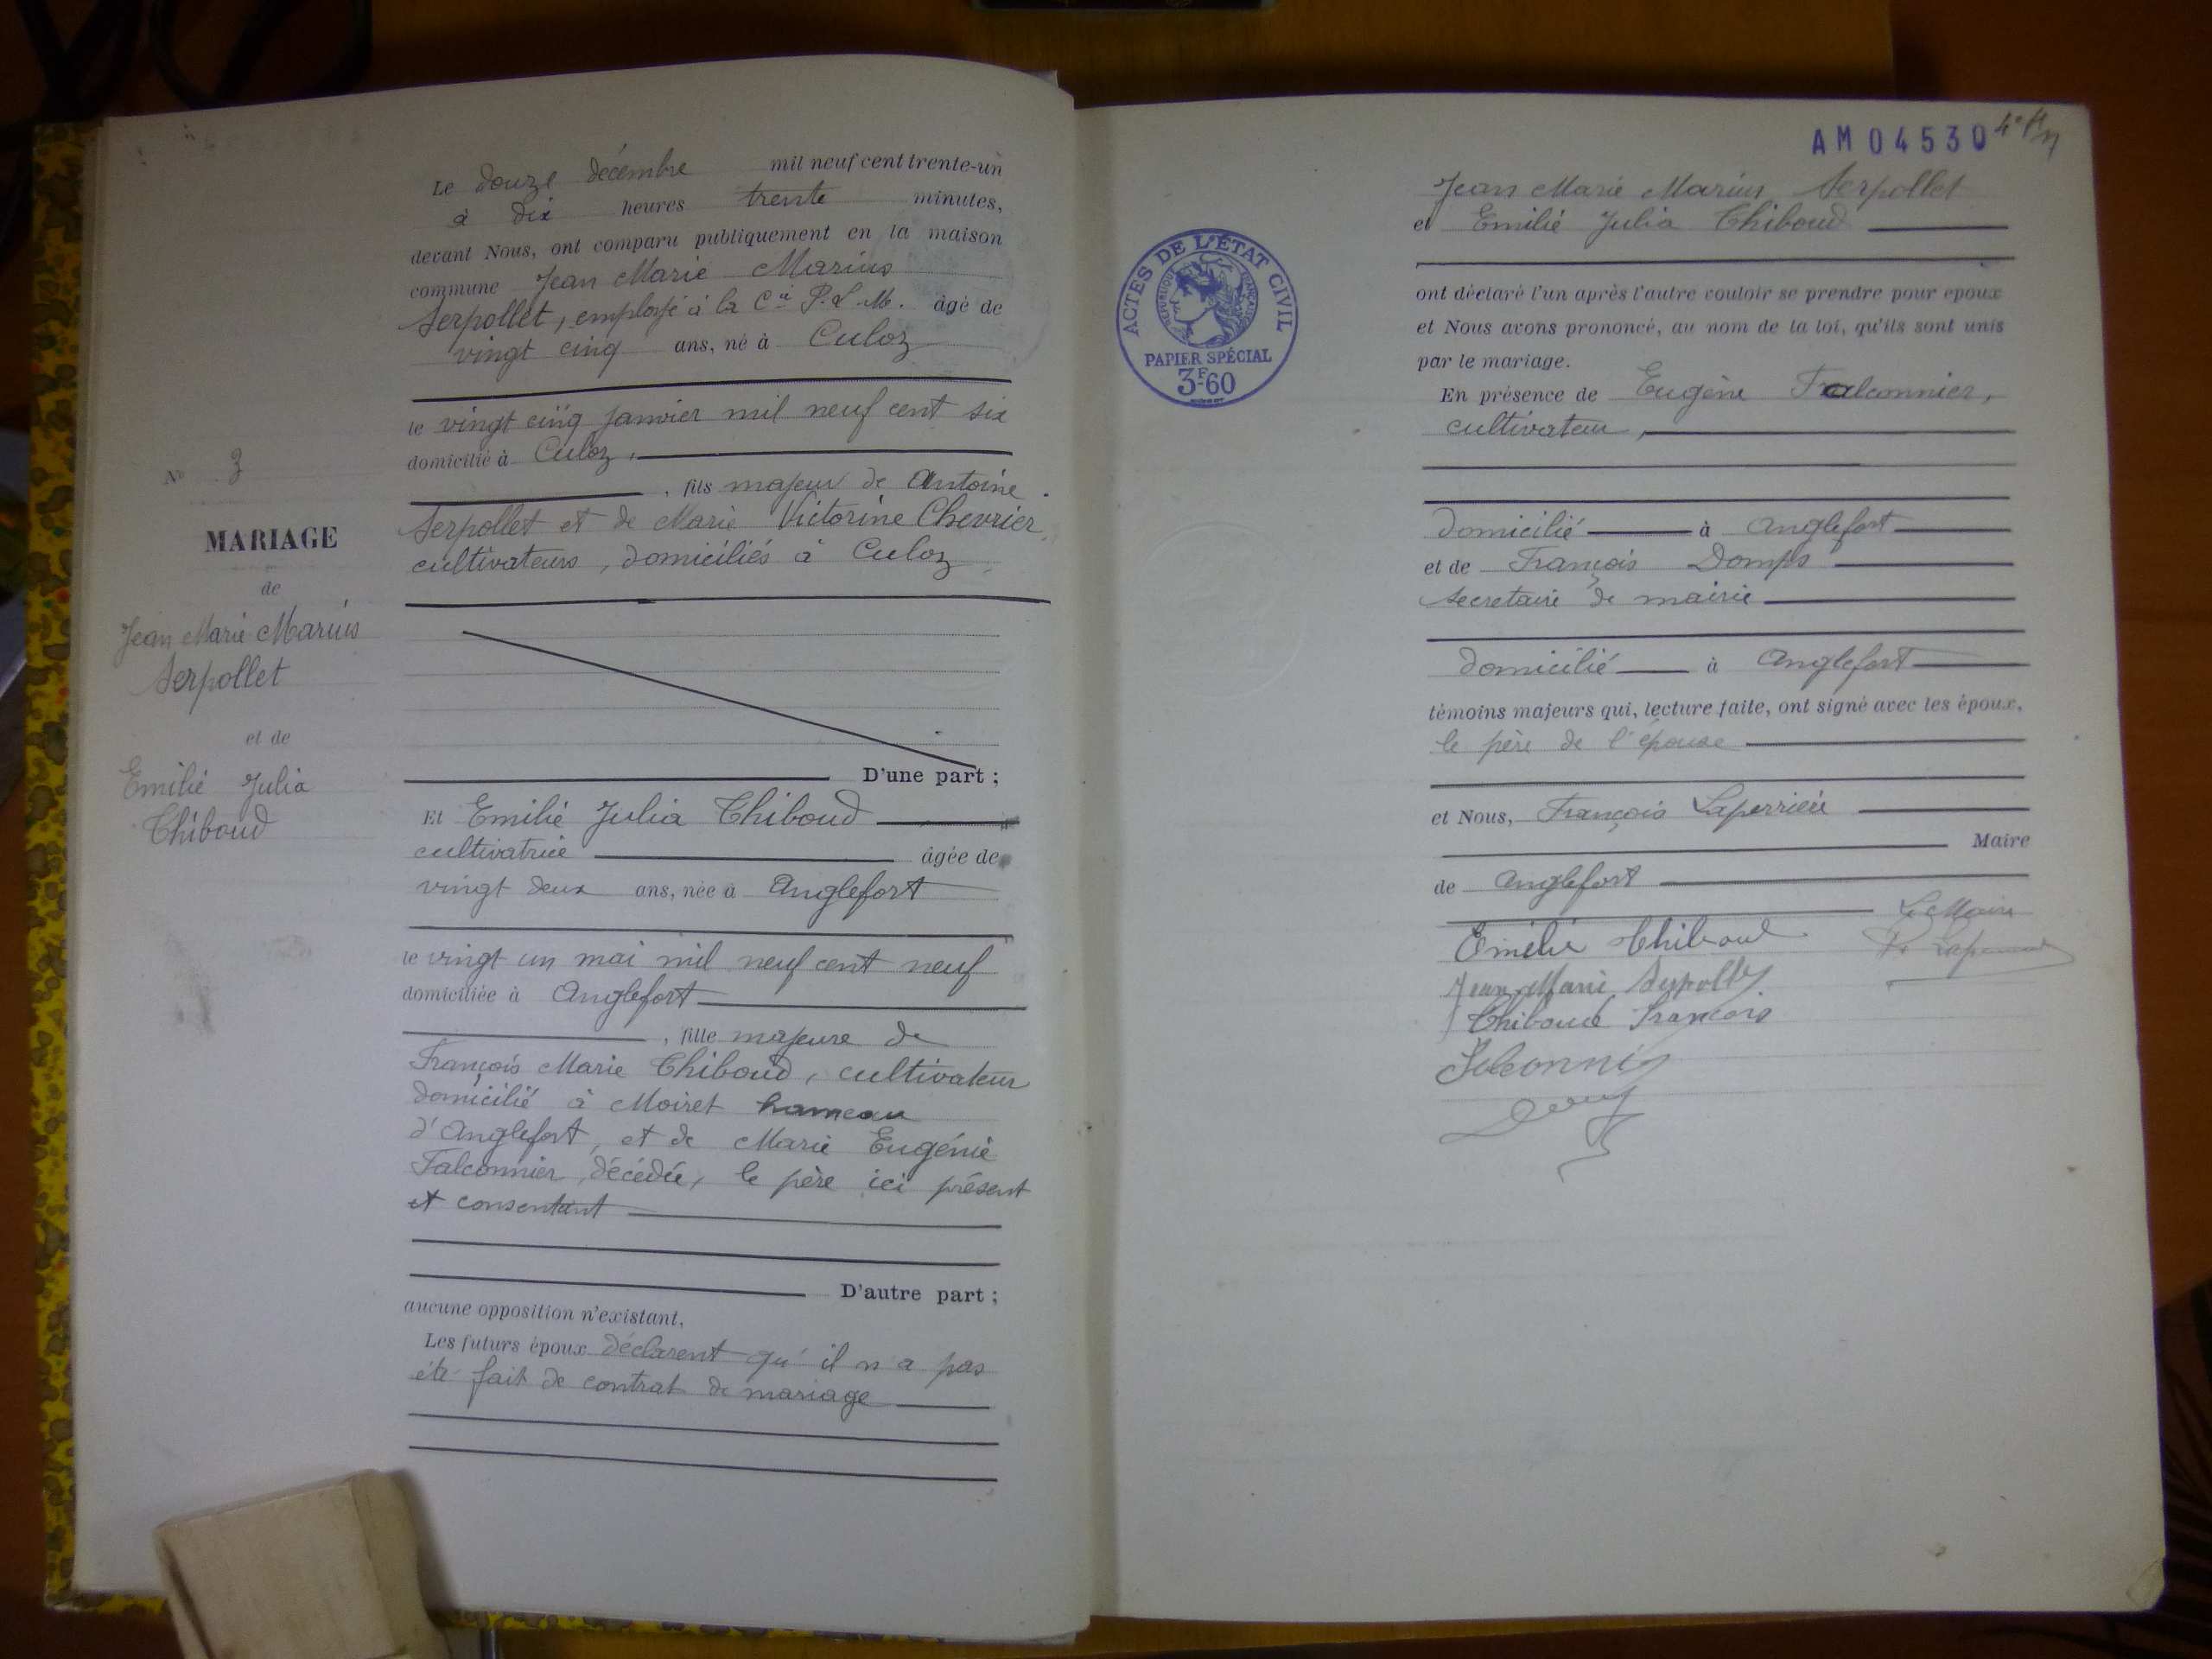 Le douze décembre mil neuf cent trente-un
à dix heures trente minutes,
devant Nous, ont comparu publiquement en la maison
commune Jean Marie Marius
Serpollet, employé à la Cie P. L. M. âgé de
vingt cinq ans, né à Culoz
le vingt cinq janvier mil neuf cent six
domicilié à Culoz,
, fils majeur de Antoine
Serpollet et de Marie Victorine Chevrier,
cultivateurs, domiciliés à Culoz
N° 3
MARIAGE
de
Jean Marie Marius
Serpollet
et de
Emilie Julia
Thiboud
D'une part ;
Et Emilie Julia Thiboud
cultivatrice âgée de
vingt deux ans, née à Anglefort
le vingt un mai mil neuf cent neuf
domiciliée à Anglefort
, fille majeure de
François Marie Thiboud, cultivateur
domicilié à Moiret hameau
d'Anglefort, et de Marie Eugénie
Falconnier, décédée, le père ici présent
et consentant
D'autre part ;
aucune opposition n'existant,
Les futurs époux déclarent qu'il n'a pas
été fait de contrat de mariage
AM 04530
Jean Marie Marius Serpollet
et Emilie Julia Thiboud
ACTES DE L'ÉTAT CIVIL
RÉPUBLIQUE FRANÇAISE
PAPIER SPÉCIAL
3F60
ont déclaré l'un après l'autre vouloir se prendre pour époux
et Nous avons prononcé, au nom de la loi, qu'ils sont unis
par le mariage.
En présence de Eugène Falconnier,
cultivateur,
domicilié à Anglefort
et de François Domps
secretaire de mairie
domicilié à Anglefort
témoins majeurs qui, lecture faite, ont signé avec les époux,
le père de l'épouse
et Nous, François Laperrière
Maire
de Anglefort
Le Maire
Emilie Thiboud
Jean Marie Serpollet
Thiboud François